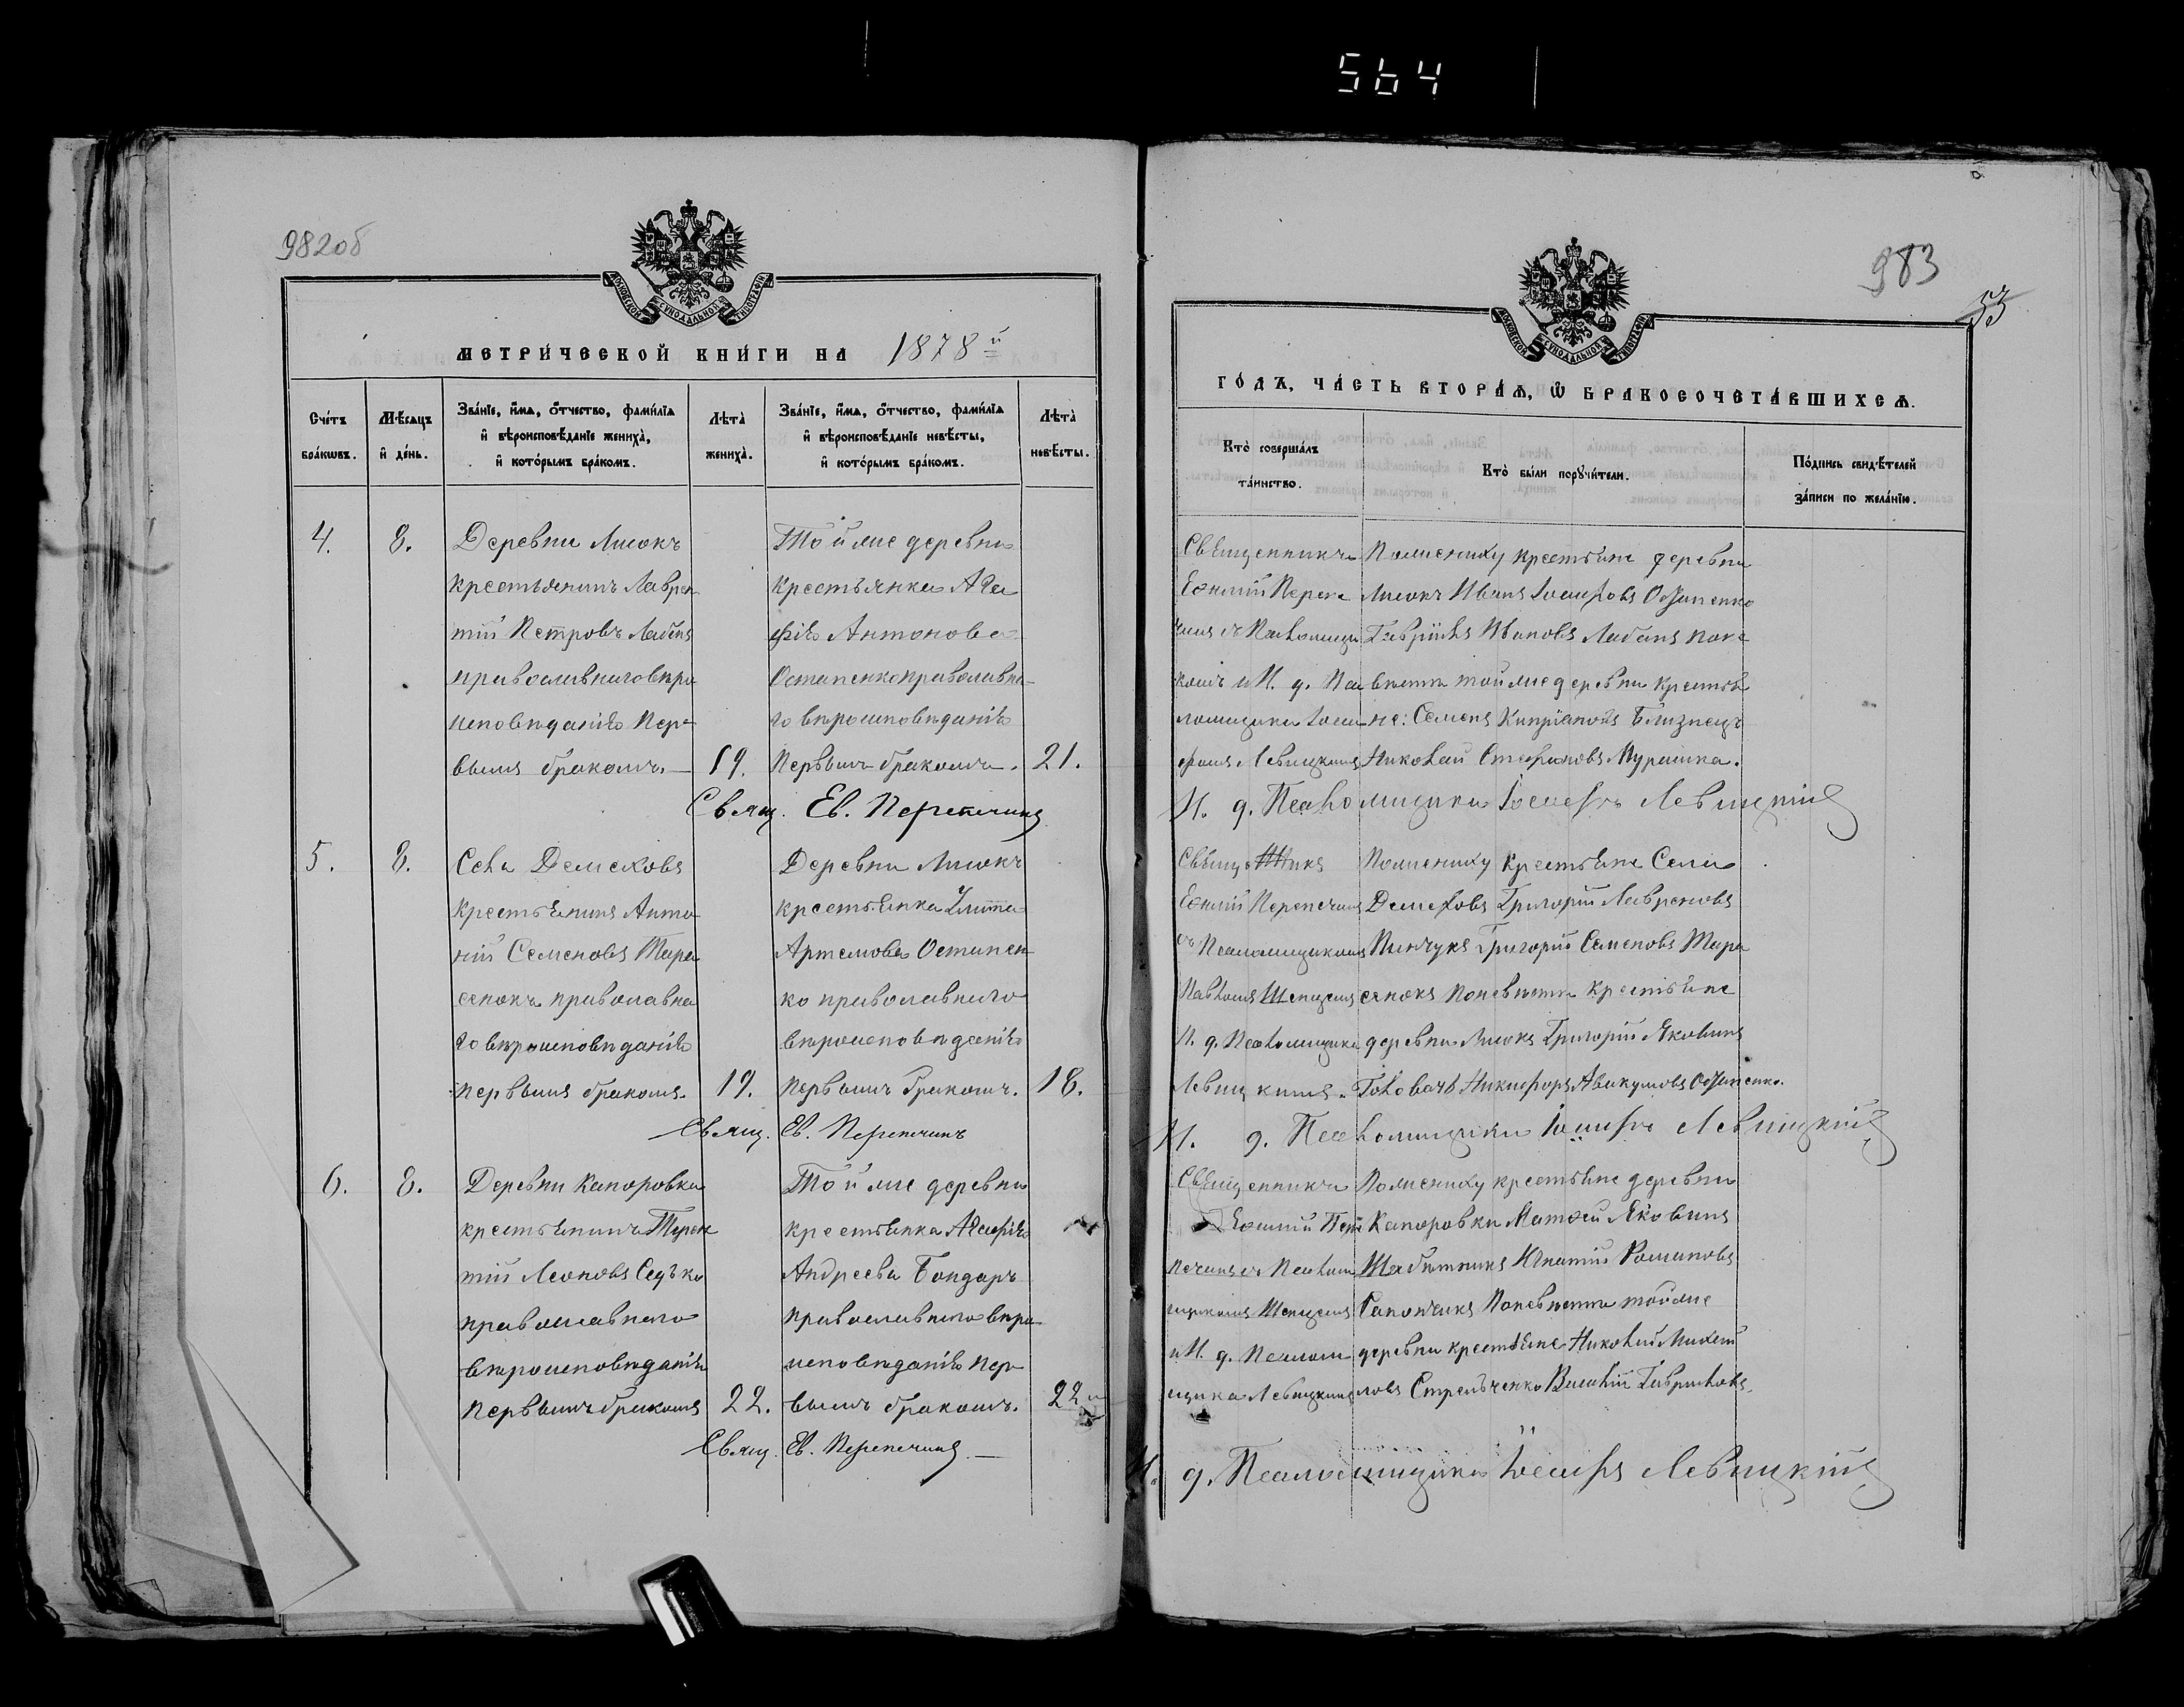 564
982об
МЕТРИЧЕСКОЙ КНИГИ НА 1878й
Счетъ браковъ.
Мѣсяцъ и день.
Званіе, имя, отчество, фамилія и вѣроисповѣданіе жениха, и которымъ бракомъ.
Лѣта жениха.
Званіе, имя, отчество, фамилія и вѣроисповѣданіе невѣсты, и которымъ бракомъ.
Лѣта невѣсты.
4.
8.
Деревни Лисокъ
крестьянинъ Лаврен
тій Петровъ
православнаго вѣро
исповѣданія Пер-
вымъ бракомъ.—
19.
Той же деревни
крестьянка Ага
фія Антонова
Остапенко православна-
го вѣроисповѣданія
Первымъ бракомъ.
21.
Свящ. Ев. Перепечинъ
5.
8.
Села Демеховъ
Крестьянинъ Анто
ній Семеновъ Тара
сенокъ православна
го вѣроисповѣданія
первымъ бракомъ.
19.
Деревни Лисокъ
крестьянка
Артемова Остапен-
ко православнаго
вѣроисповѣданія
первымъ бракомъ.
18.
Свящ. Ев. Перепечинъ
6.
8.
Деревни Капоровки
крестьянинъ Терен
тій Леоновъ Седько
православнаго
вѣроисповѣданія
Первымъ бракомъ
22.
Той же деревни
крестьянка Агафія
Андреева Бондарь
православнаго вѣро
исповѣданія Пер-
вымъ бракомъ.
22
Свящ. Ев. Перепечинъ.—
983
53
ГОДЪ, ЧАСТЬ ВТОРАЯ, Ѡ БРАКОСОЧЕТАВШИХСЯ.
Кто совершалъ таинство.
Кто были поручители.
Подпись свидѣтелей записи по желанію.
Священникъ
Перепе
чинъ съ Псаломщи
комъ и И. д. Пса
ломщика Іоси
фомъ Левицкимъ
По жениху крестьяне деревни
Лисокъ Иванъ Іосифовъ Остапенко
Гавріилъ Ивановъ по не
вѣстѣ той же деревни крестья
не: Семенъ Кипріановъ Близнецъ
Николай Стефановъ Мурашка.
И. д. Псаломщика Іосифъ Левицкій
Перепечинъ
съ Псаломщикомъ
Павломъ Шенцемъ
И. д. Псаломщика
Левицкимъ.
По жениху крестьяне Села
Демеховъ Григорій
Пинчукъ Григорій Семеновъ Тара
сенокъ По невѣстѣ крестьяне
деревни Лисокъ Григорій Яковинъ
Головачъ Никифоръ Авакумовъ Остапенко.
И. д. Псаломщика Іосифъ Левицкій
Священникъ
Пере
печинъ съ Псалом
щикомъ Шенцемъ
и И. д. Псалом
щика Левицкимъ
По жениху крестьяне деревни
Капоровки Матѳей Яковинъ
Игнатій Романовъ
По невѣстѣ той же
деревни крестьяне Николай Михай
ловъ Стрельченко Василій Гавриловъ.
И. д. Псаломщика Іосифъ Левицкій